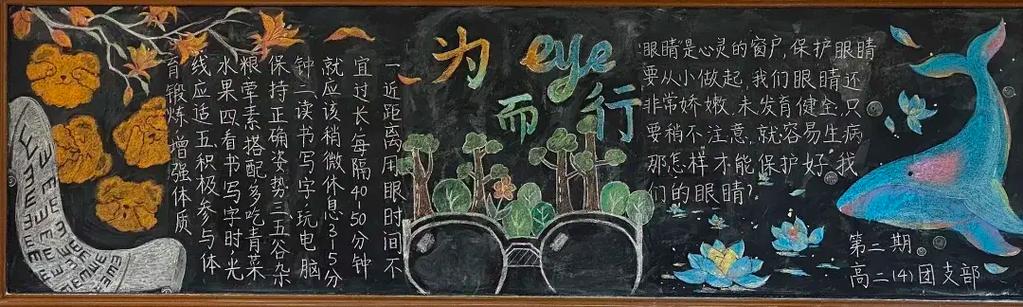 为 eye
而行
一近距离用眼时间不
宜过长,每隔40-50分钟
就应该稍微休息3-5分
钟二读书写字玩电脑
保持正确姿势三五谷杂
粮荤素搭配多吃青菜
水果四看书写字时光
线应适五积极参与体
育锻炼,增强体质
眼睛是心灵的窗户,保护眼睛
要从小做起,我们眼睛还
非常娇嫩,未发育健全,只
要稍不注意,就容易生病
那怎样才能保护好我
们的眼睛?
第二期
高二(4)团支部